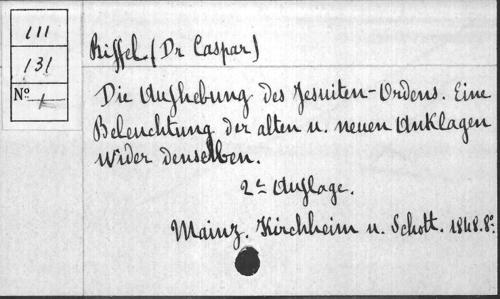 111
131
Nº 1
Riffel (Dr Caspar)
Die Aufhebung des Jesuiten-Ordens. Eine
Beleuchtung der alten u. neuen Anklagen
wider denselben.
2te Auflage.
Mainz. Kirchheim u. Schott. 1848. 8º.